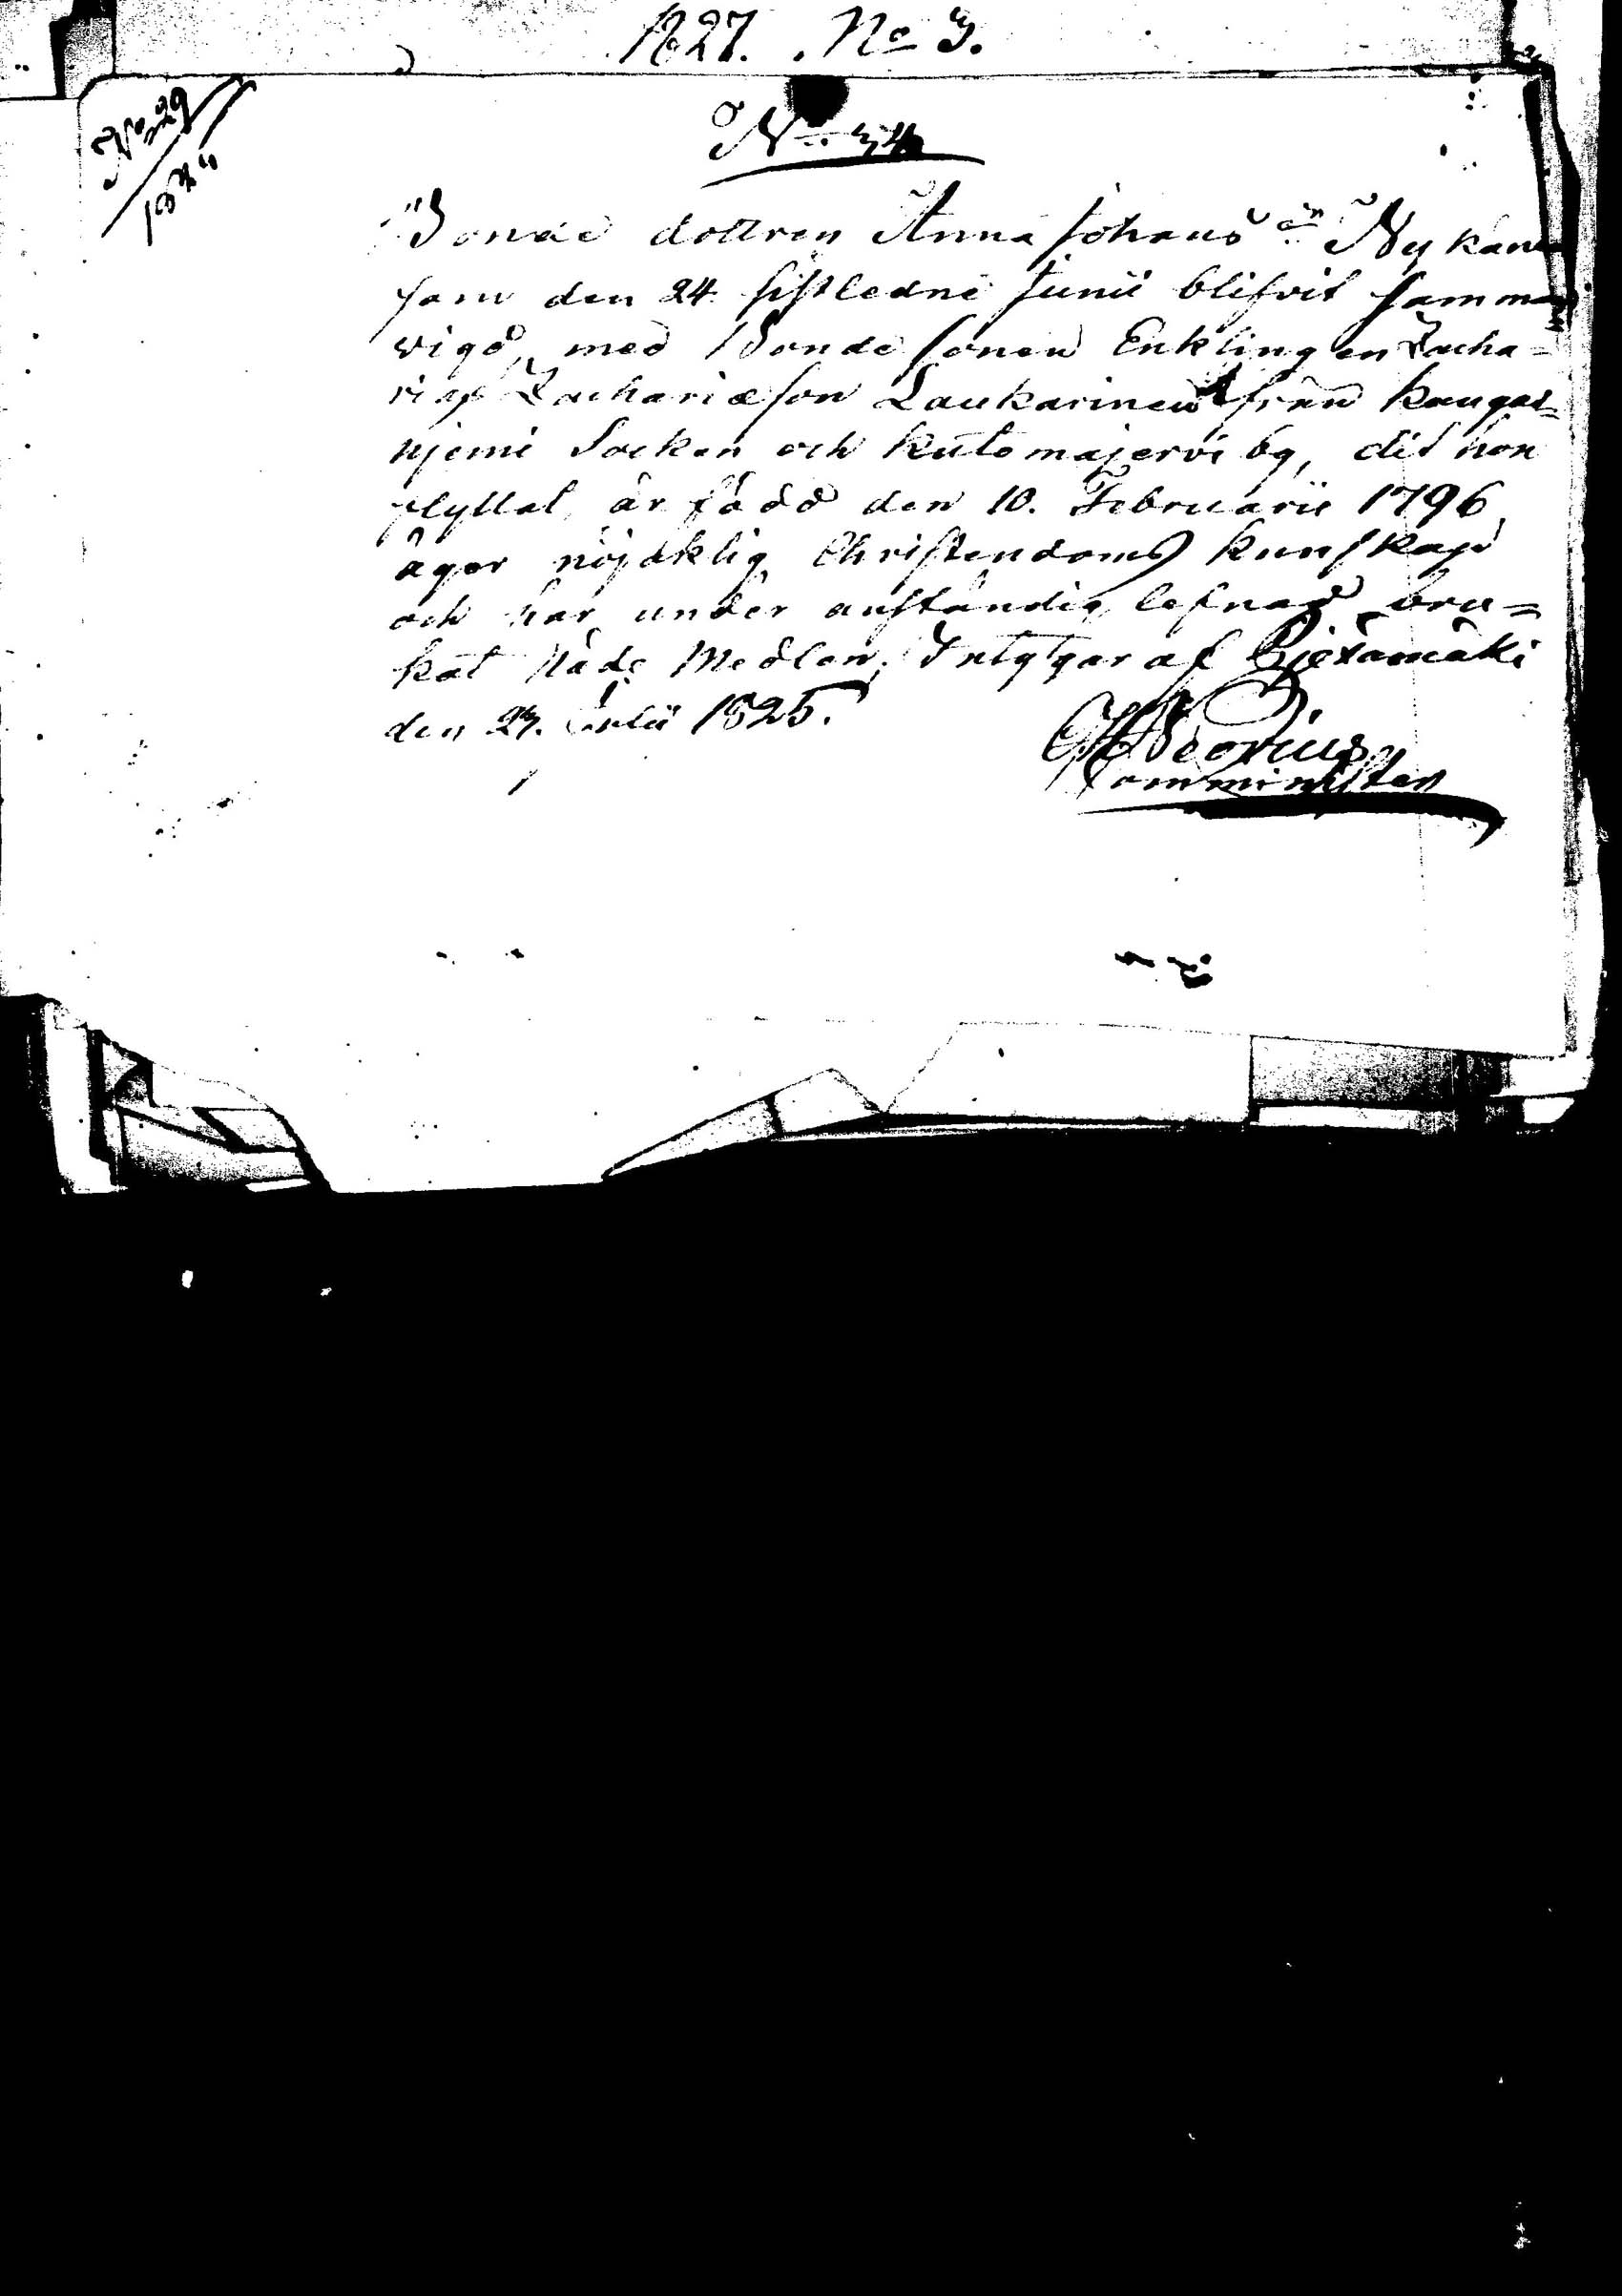 1827. No 3.
No 29
No 34
Bonde dottren Anna Johans dn Nykän
som den 24 sistledne Junii blifvit samman
vigd, med Bonde sonen Enklingen Zacha=
rias Zachariæson Laukarinen från Kangas=
njemi Socken och Kutemajervi by, dit hon
flyttat, är född den 10. Februarii 1796
äger nöjaktig Christendoms kunskap
och har under anständig lefnad bru=
kat Nåde Medlen; Intygar af Pjexämäki
den 23. Julii 1825.
Neovius
Comminister